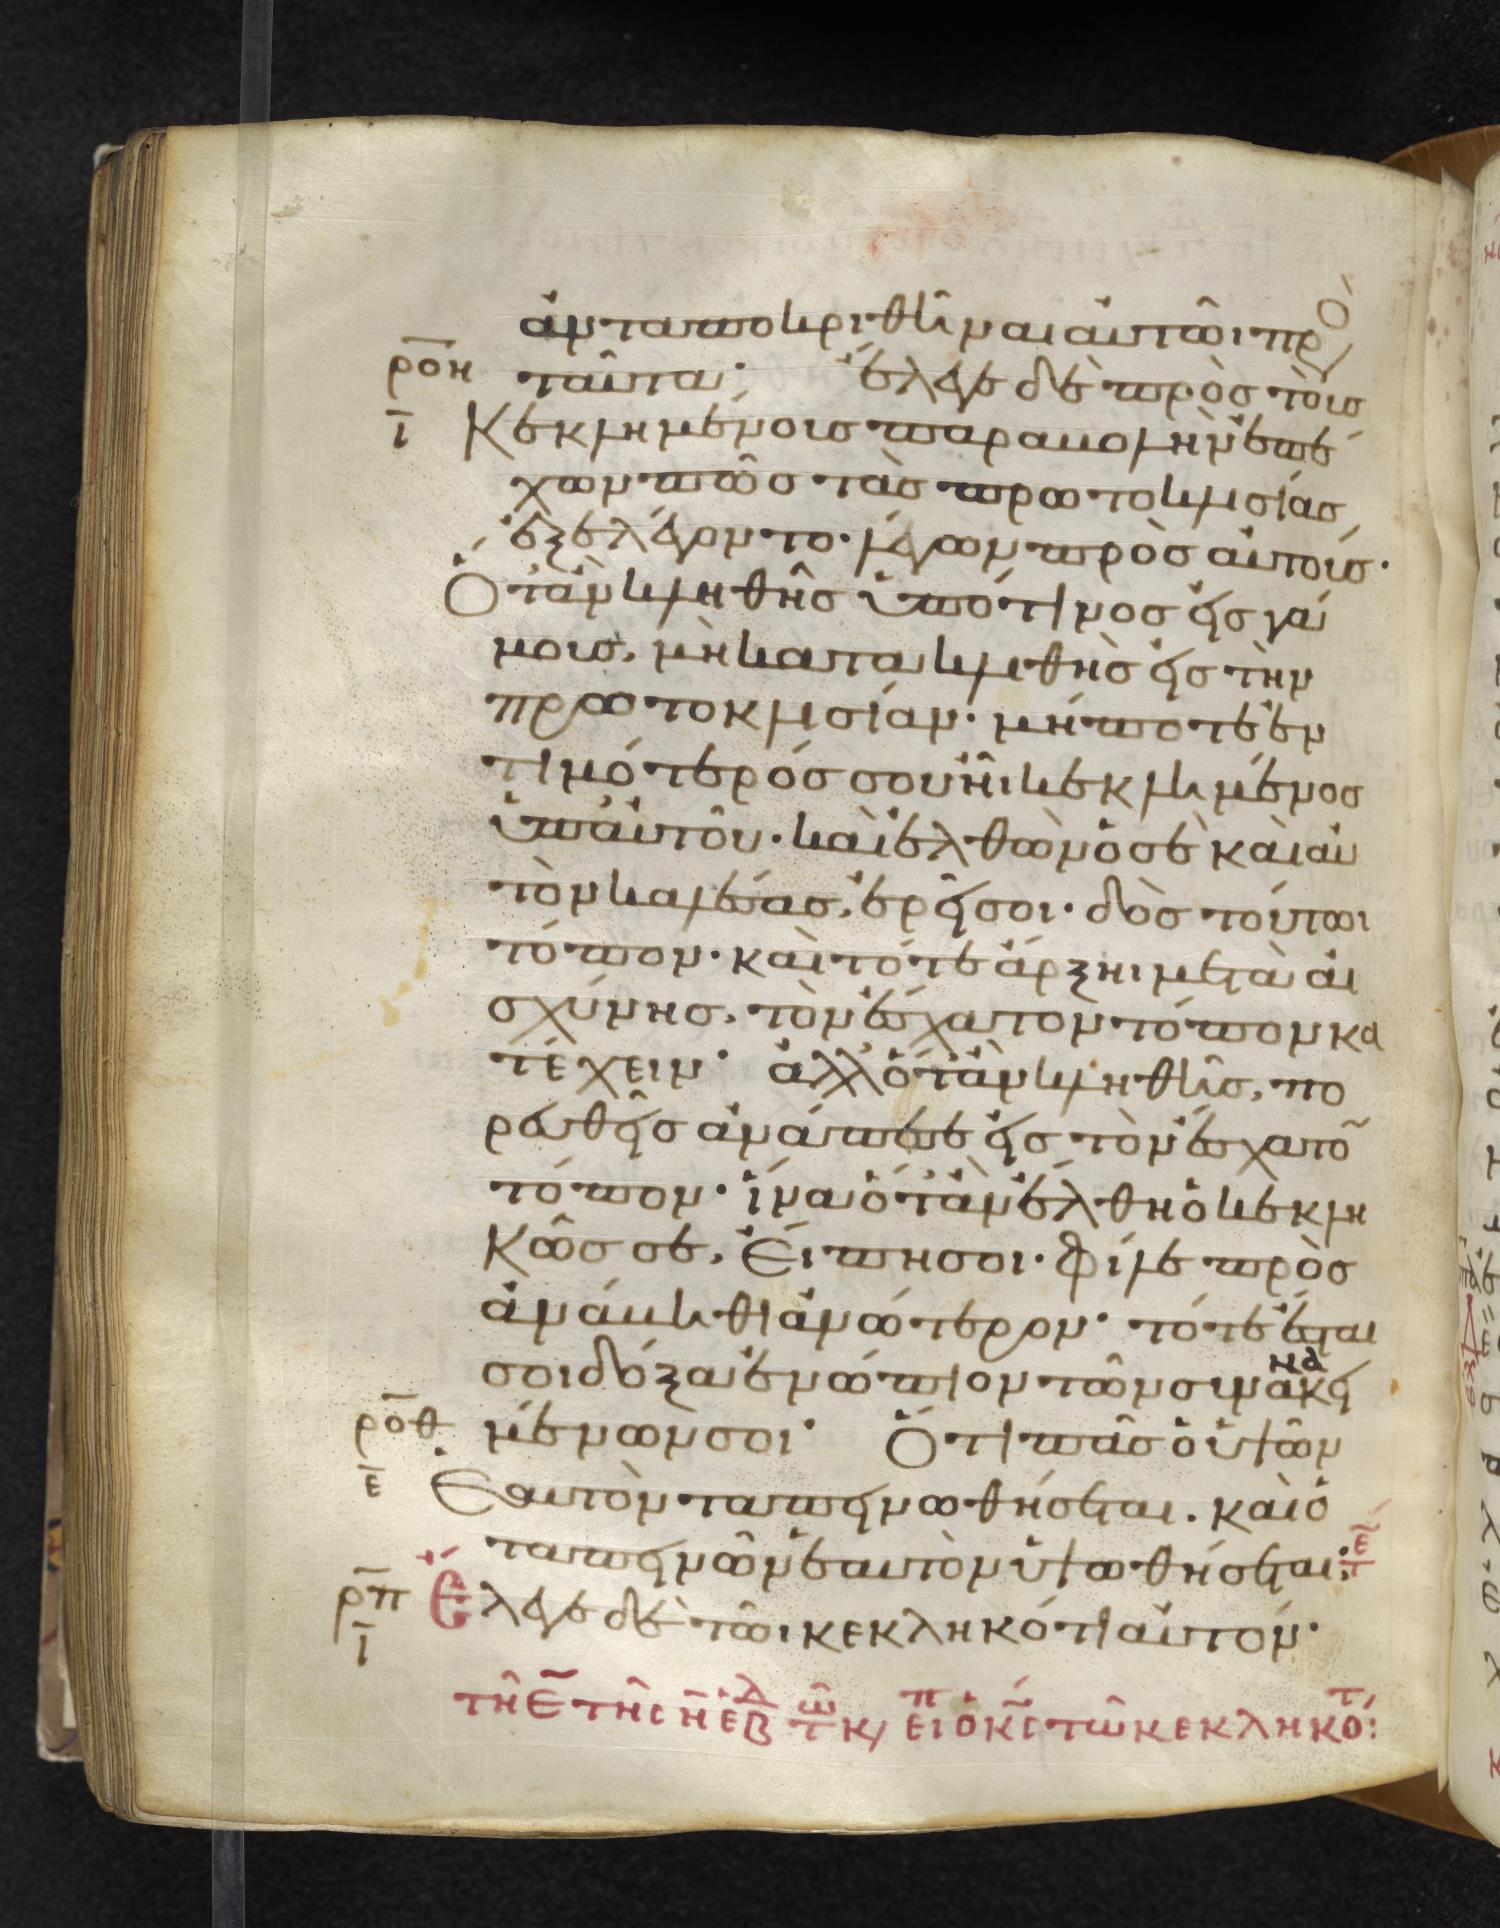 ἀνταποκριθῆναι αὐτῶι πρὸ
ροη ταῦτα· ἔλεγε δὲ πρὸς τοὺς
ι κεκλημένους παραβολὴν ἐπέ
χων πῶς τὰς πρωτοκλησίας
ἐξελέγοντο· λέγων πρὸς αὐτούς·
Ὅταν κληθῆς ὑπό τινος εἰς γά
μους, μὴ κατακλιθῆς εἰς τὴν
πρωτοκλησίαν· μήποτε ἐν
τιμότερός σου ἦι κεκλημένος
ὑπ' αὐτοῦ· καὶ ἐλθὼν ὁ σὲ καὶ αὐ
τὸν καλέσας, ἐρεῖ σοι· δὸς τούτωι
τόπον· καὶ τότε ἄρξηι μετὰ αἰ
σχύνης, τὸν ἔσχατον τόπον κα
τέχειν· ἀλλ' ὅταν κληθῆς, πο
ρευθεὶς ἀνάπεσε εἰς τὸν ἔσχατο̃
τόπον· ἵνα ὅταν ἔλθη ὁ κεκλη
κῶς σε, εἴπη σοι· φίλε πρὸς
ανάβηθι ἀνώτερον· τότε ἔσται
σοι δόξα ἐνώπιον τῶν συνανακει
ροθ μένων σοι· Ὅτι πᾶς ὁ ὑψῶν
ε ἑαυτὸν ταπεινωθήσεται. καὶ ὁ
ταπεινῶν ἑαυτὸν ὑψωθήσεται·
ρπ Ἔλεγε δὲ τῶι κεκληκότι αὐτόν·
ι